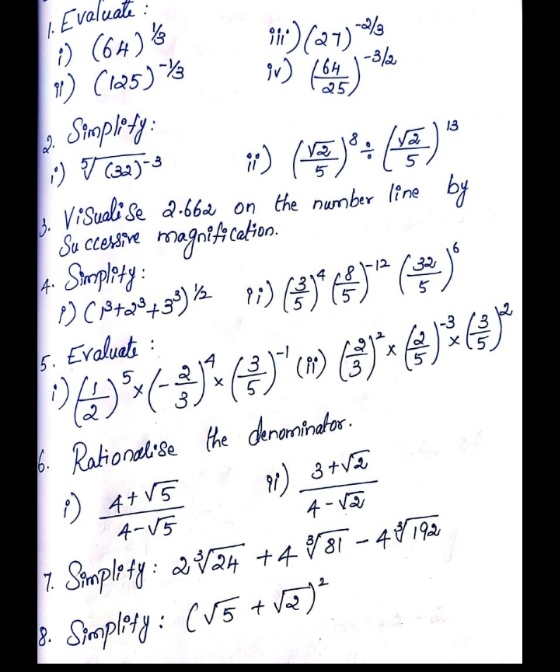 1. Evaluate :
i) (64)^⅓ iii) (27)^-2/3
ii) (125)^-⅓ iv) (64/25)^-3/2
2. Simplify:
i) ⁵√(32)^-3 ii) (√2/5)^8 ÷ (√2/5)^13
3. Visualise 2.662 on the number line by
Successive magnification.
4. Simplify:
i) (1³+2³+3³)^½ ii) (3/5)^4 (8/5)^-12 (32/5)^6
5. Evaluate :
i) (1/2)^5 × (-2/3)^4 × (3/5)^-1 (ii) (2/3)^2 × (2/5)^-3 × (3/5)^2
6. Rationalise the denominator.
i) 4+√5 / 4-√5 ii) 3+√2 / 4-√2
7. Simplify: 2∛24 + 4∛81 - 4∛192
8. Simplify: (√5 + √2)²